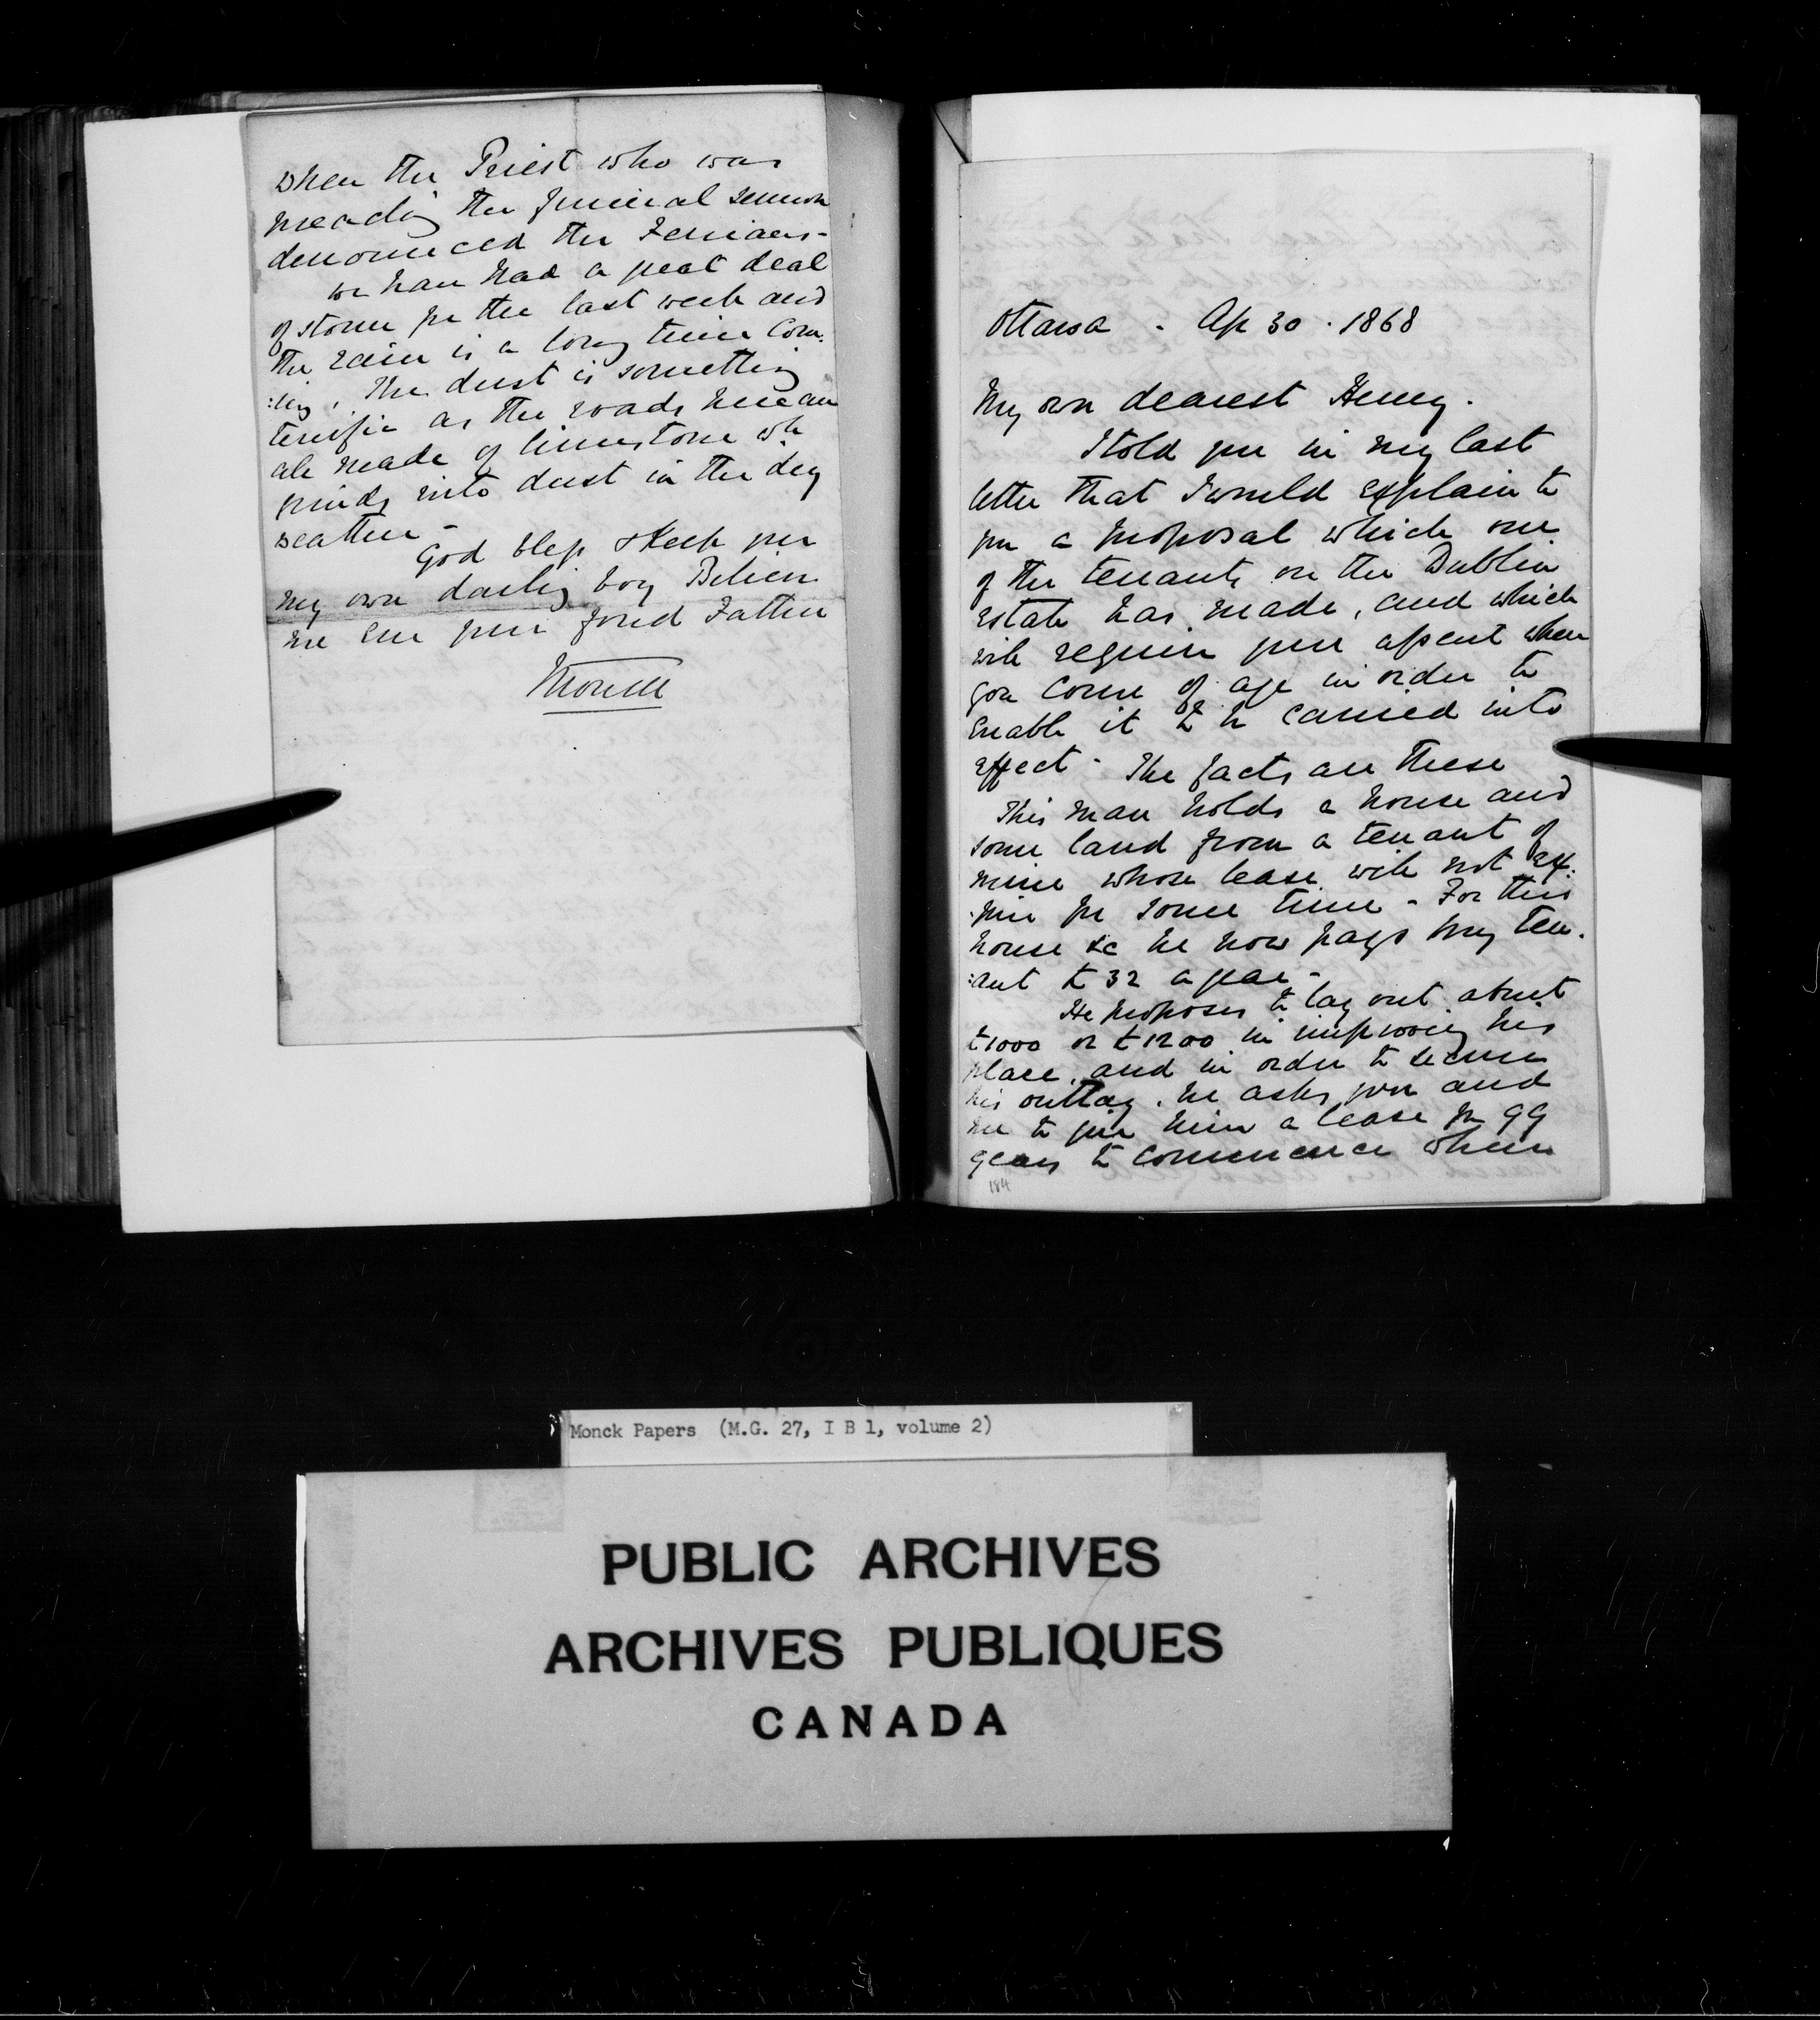 when the Priest who was
preaching the funeral sermon
denounced the Fenians -
We have had a great deal
of storm for the last week and
the rain is a long time com:
:ing. The dust is something
terrific as the roads here are
all made of limestone wh
grinds into dust in the dry
weather -
God bless & keep you
my own darling boy Believe
me ever your fond Father
Monck
Ottawa - Ap 30 . 1868
My own dearest Henry.
I told you in my last
letter that I would explain to
you a proposal which one
of the tenants on the Dublin
Estate has made, and which
will require your assent when
you come of age in order to
enable it to be carried into
effect - The facts are these
This man holds a house and
some land from a tenant of
mine whose lease will not ex:
:pire for some time - For this
house &c he now pays my ten:
:ant £32 a year -
He proposes to lay out about
£1000 or £1200 in improving his
place, and in order to secure
his outlay, he asks you and
me to give him a lease for 99
years to commence when
184
Monck Papers (M.G. 27, I B 1, volume 2)
PUBLIC ARCHIVES
ARCHIVES PUBLIQUES
CANADA